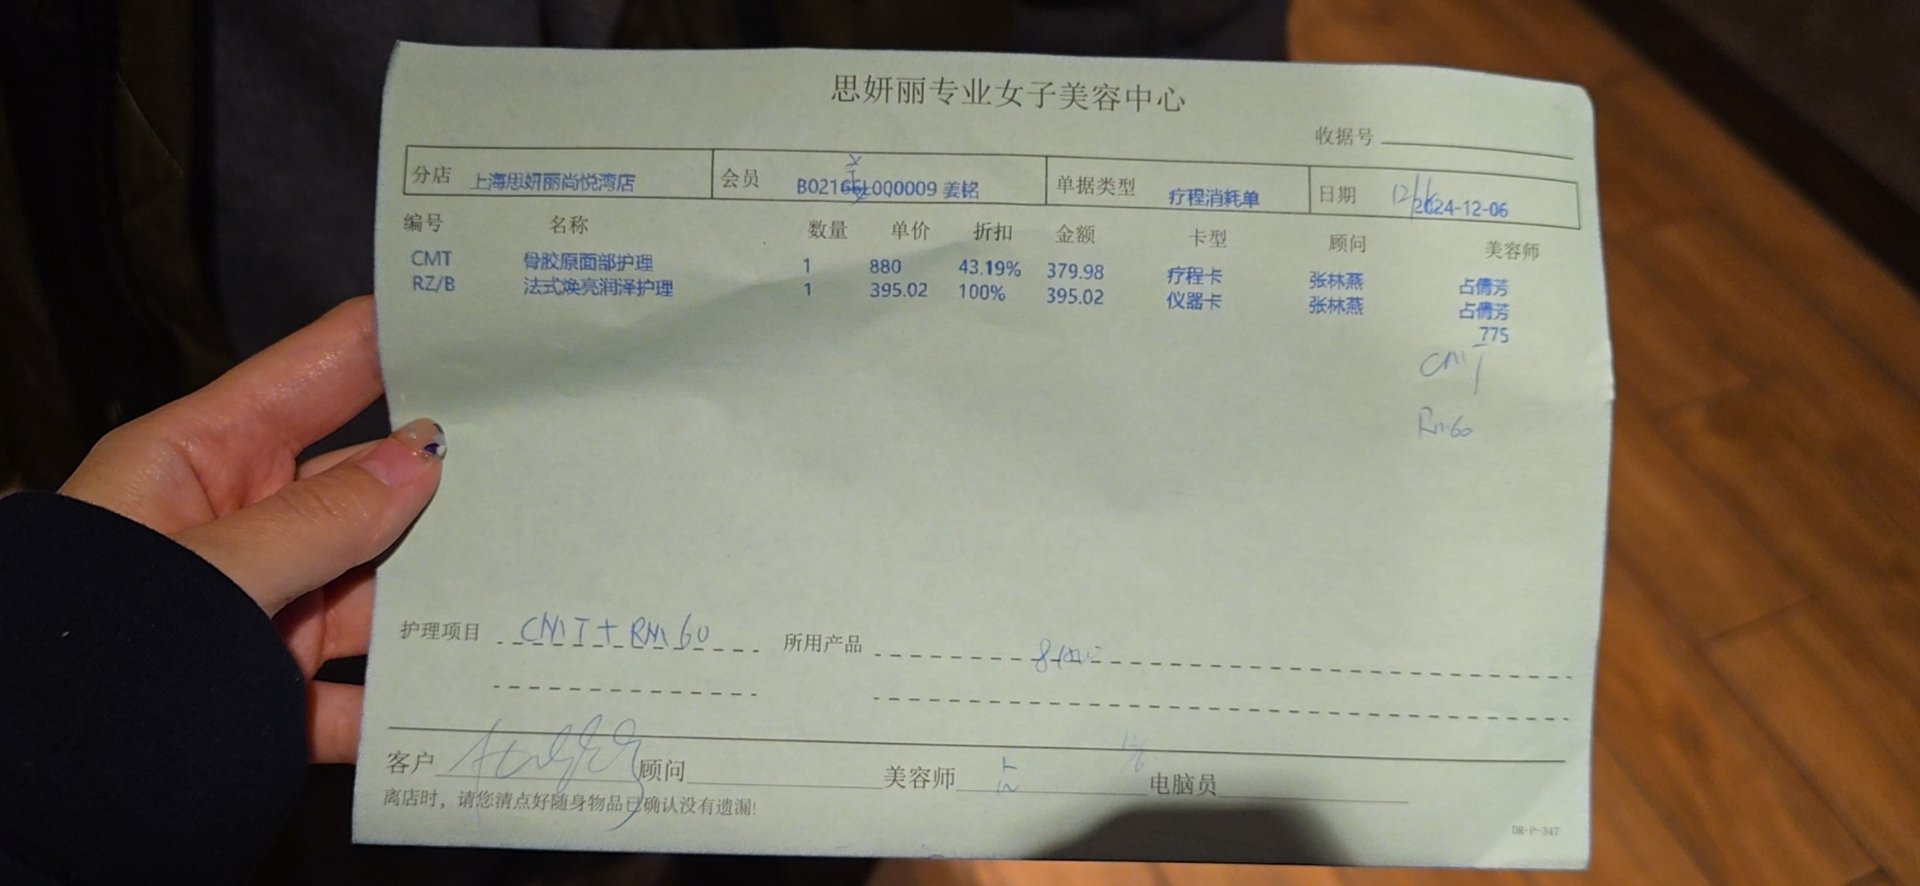 思妍丽专业女子美容中心
收据号
分店 上海思妍丽尚悦湾店 会员 B02166L000009 姜铭 单据类型 疗程消耗单 日期 2024-12-06
编号 名称 数量 单价 折扣 金额 卡型 顾问 美容师
CMT 骨胶原面部护理 1 880 43.19% 379.98 疗程卡 张林燕 占倩芳
RZ/B 法式焕亮润泽护理 1 395.02 100% 395.02 仪器卡 张林燕 占倩芳
775
CMT
RM60
护理项目 CMT+RM60 所用产品
客户 顾问 美容师 12/6 电脑员
离店时，请您清点好随身物品已确认没有遗漏!
DR-P-347